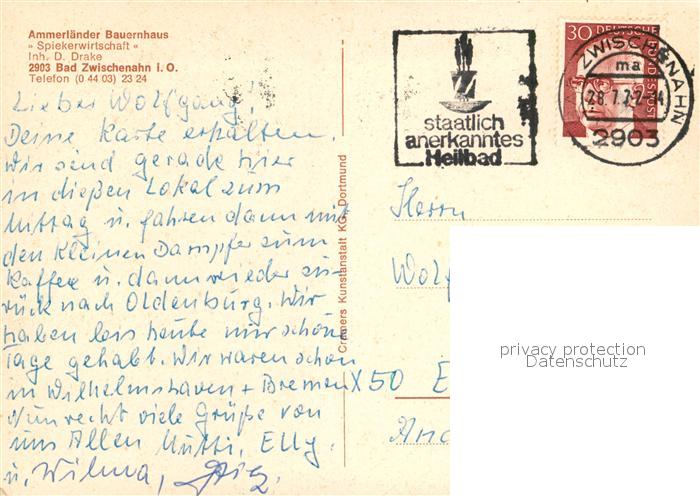 Ammerländer Bauernhaus
» Spiekerwirtschaft «
Inh. D. Drake
2903 Bad Zwischenahn i. O.
Telefon (0 44 03) 23 24
Lieber Wolfgang!
Deine Karte erhalten.
Wir sind gerade hier
in dießen Lokal zum
Mittag u. fahren dann mit
den kleinen Dampfer zum
Kaffee u. dann wieder zu-
rück nach Oldenburg. Wir
haben bis heute nur schöne
Tage gehabt. Wir waren schon
in Wilhelmshaven + Bremen
Nun recht viele Grüße von
uns Allen Mutti, Elly
u. Wilma,
Cramers Kunstanstalt KG., Dortmund
staatlich
anerkanntes
Heilbad
30 DEUTSCHE
BUNDESPOST
ZWISCHENAHN
ma
28.7.72
2903
Herrn
Wolf
X50 E
privacy protection
Datenschutz